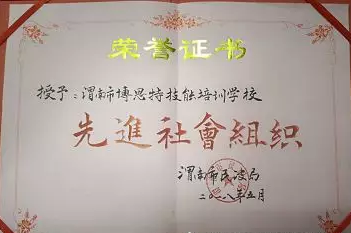 荣誉证书
授予：渭南市博思特技能培训学校
先進社會組织
渭南市民政局
二〇一八年五月